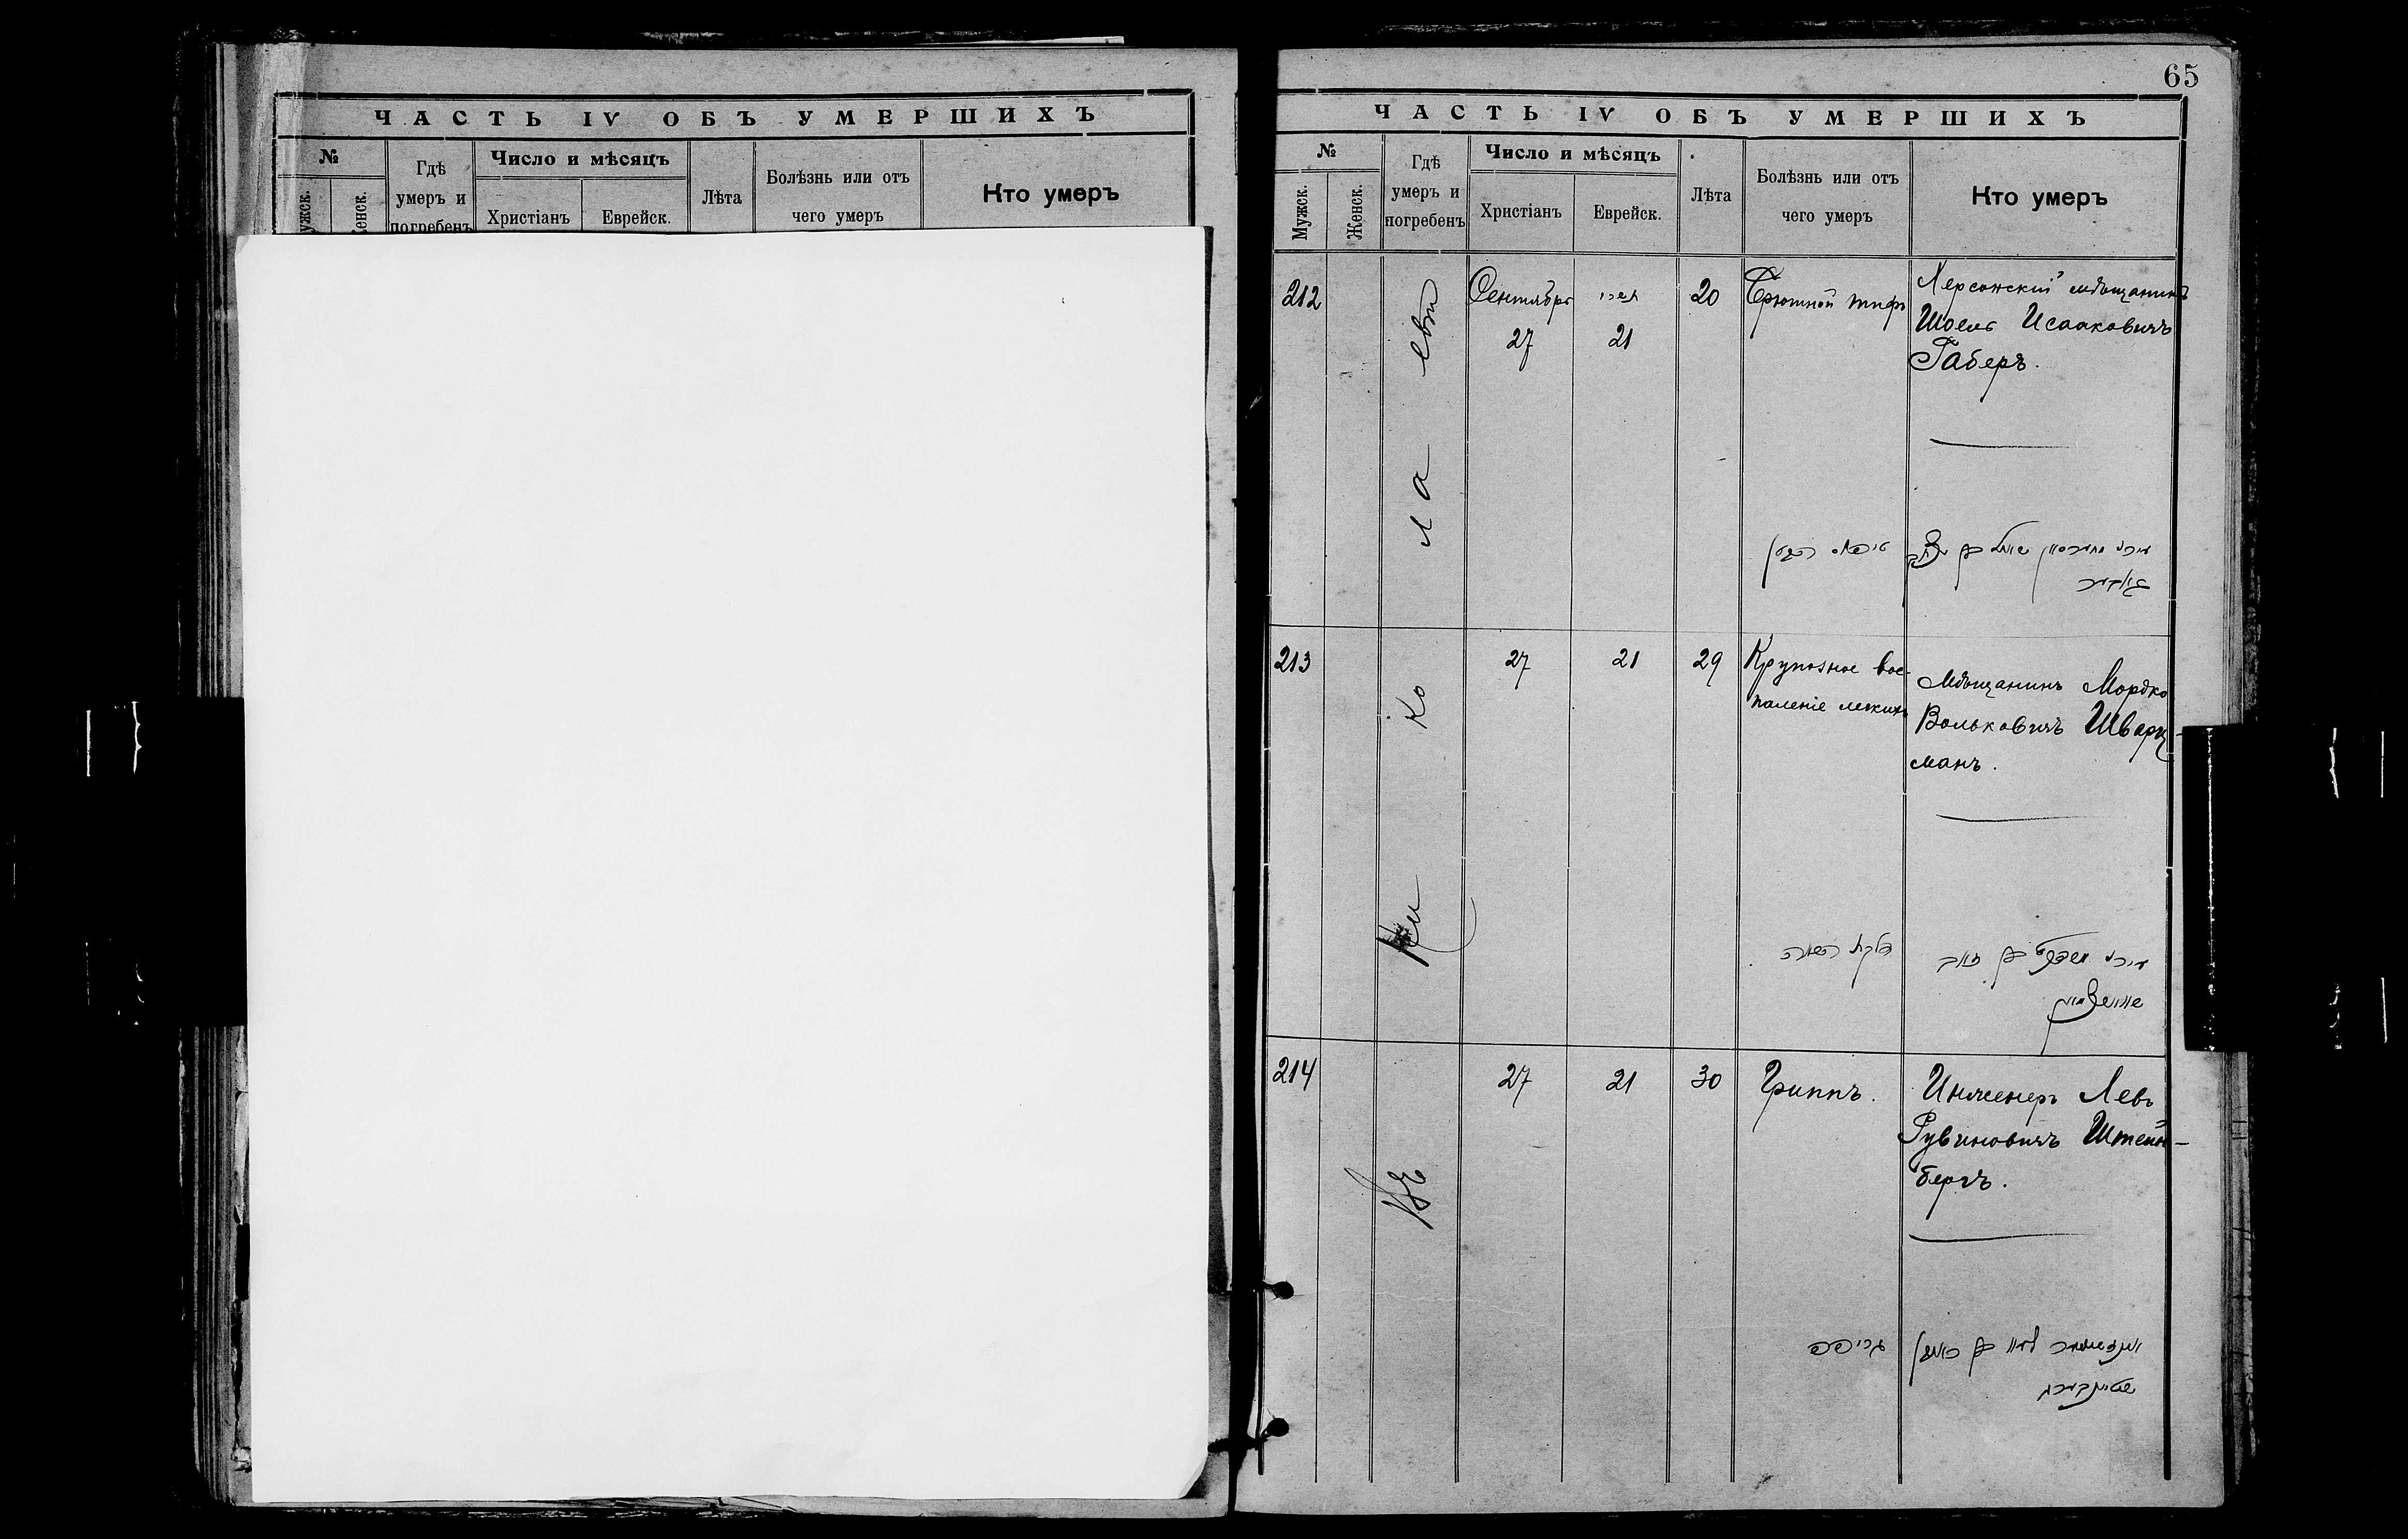 ЧАСТЬ IV ОБЪ УМЕРШИХЪ
№
Гдѣ умеръ и погребенъ
Число и мѣсяцъ
Лѣта
Болѣзнь или отъ чего умеръ
Кто умеръ
Христіанъ
Еврейск.
65
ЧАСТЬ IV ОБЪ УМЕРШИХЪ
№
Мужск.
Женск.
Гдѣ умеръ и погребенъ
Число и мѣсяцъ
Христіанъ
Еврейск.
Лѣта
Болѣзнь или отъ чего умеръ
Кто умеръ
212
Сентябрь
27
תשרי
21
20
Брюшной тифъ
Херсонскій мѣщанинъ
Шоель Исааковичъ
Габеръ.
213
27
21
29
Крупозное вос-
паленіе легкихъ
Мѣщанинъ Мордко
Вольковичъ Шварц-
манъ.
דלקת הריאה
214
27
21
30
Гриппъ.
Инженеръ Левъ
Рувиновичъ Штейн-
бергъ.
גריפפע
שטיינבערג